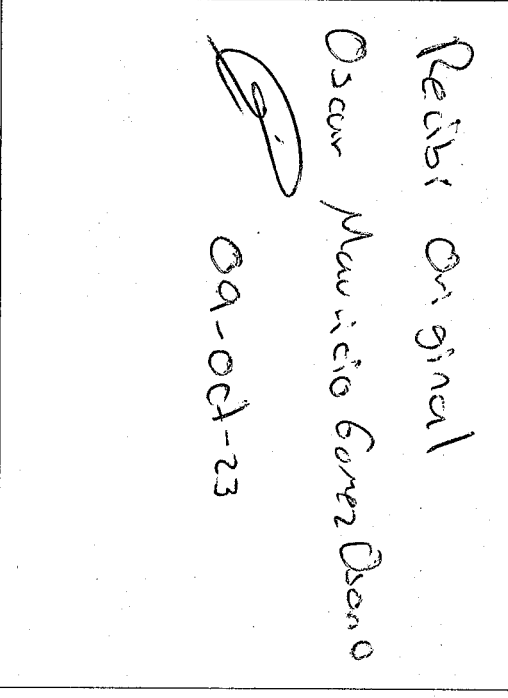 Recibi Original
Oscar Mauricio Gomez Osorio
09-oct-23